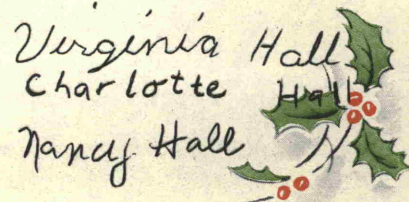 Virginia Hall
Charlotte Hall
Nancy Hall